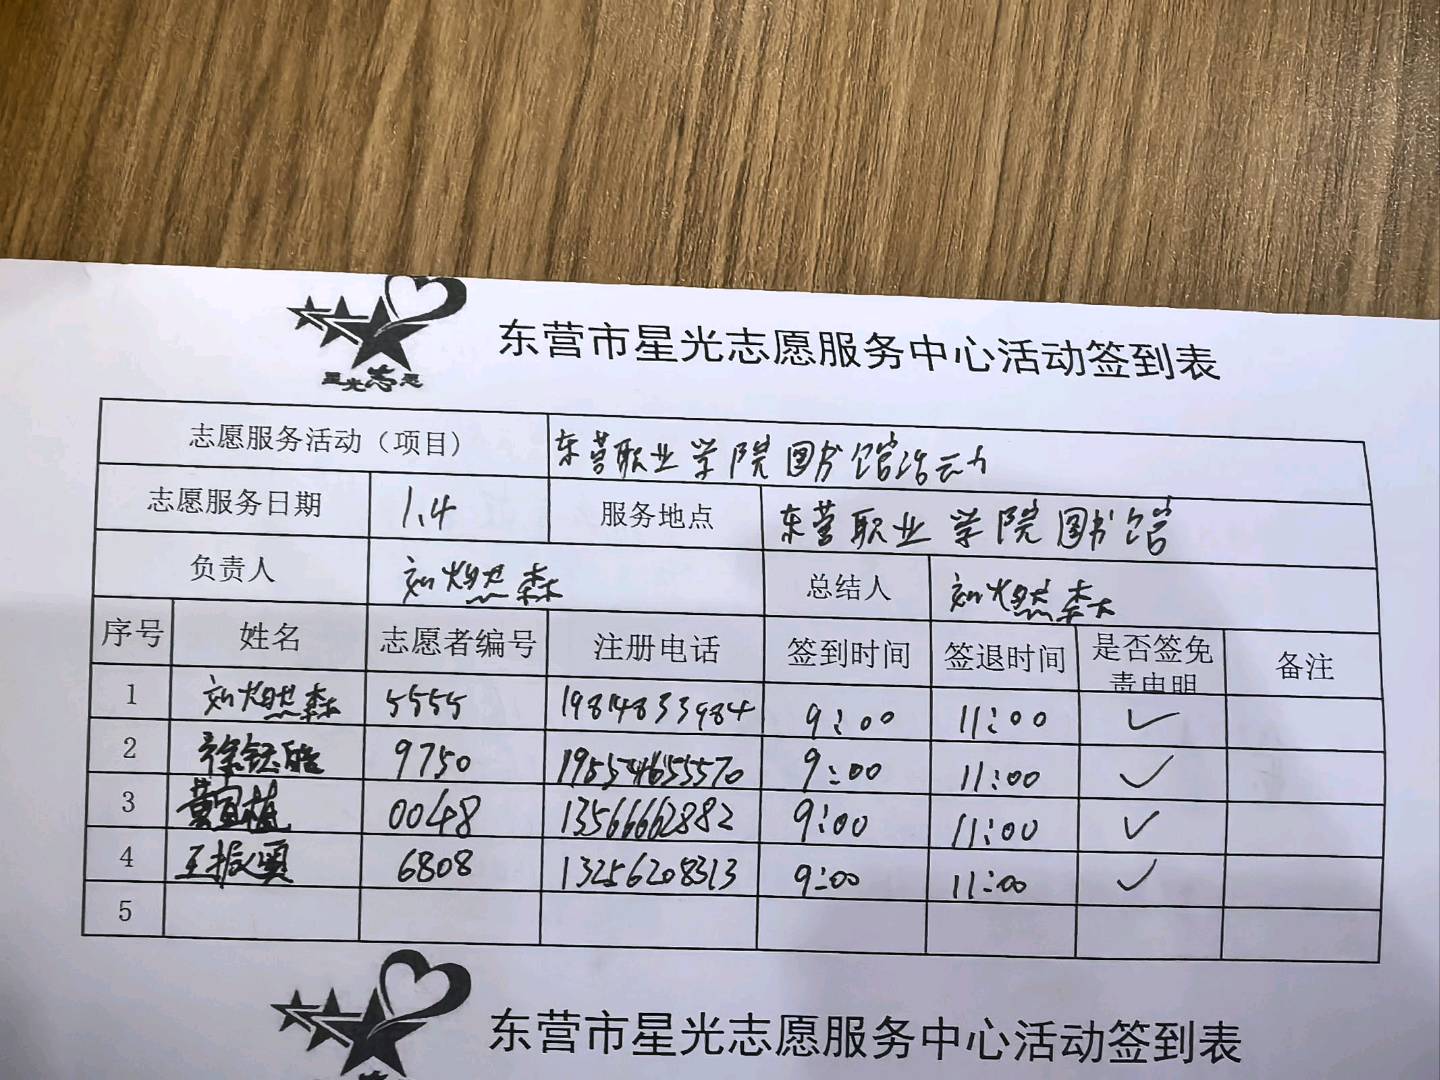 星光志愿
东营市星光志愿服务中心活动签到表
志愿服务活动（项目） 东营职业学院图书馆活动
志愿服务日期 1.4 服务地点 东营职业学院图书馆
负责人 刘燃森 总结人 刘燃森
序号 姓名 志愿者编号 注册电话 签到时间 签退时间 是否签免责申明 备注
1 刘燃森 5555 19814833984 9:00 11:00 ✓
2 9750 9:00 11:00 ✓
3 黄宜植 0048 13566662882 9:00 11:00 ✓
4 王振 6808 13256208313 9:00 11:00 ✓
5
东营市星光志愿服务中心活动签到表